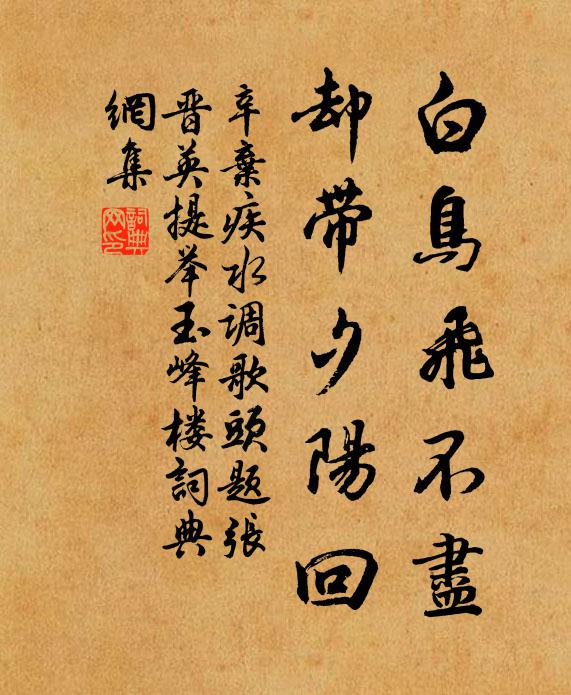 白鳥飛不盡
却帶夕陽回
辛棄疾水调歌頭题張
晋英提举玉峰楼詞典
網集
詞典
网印